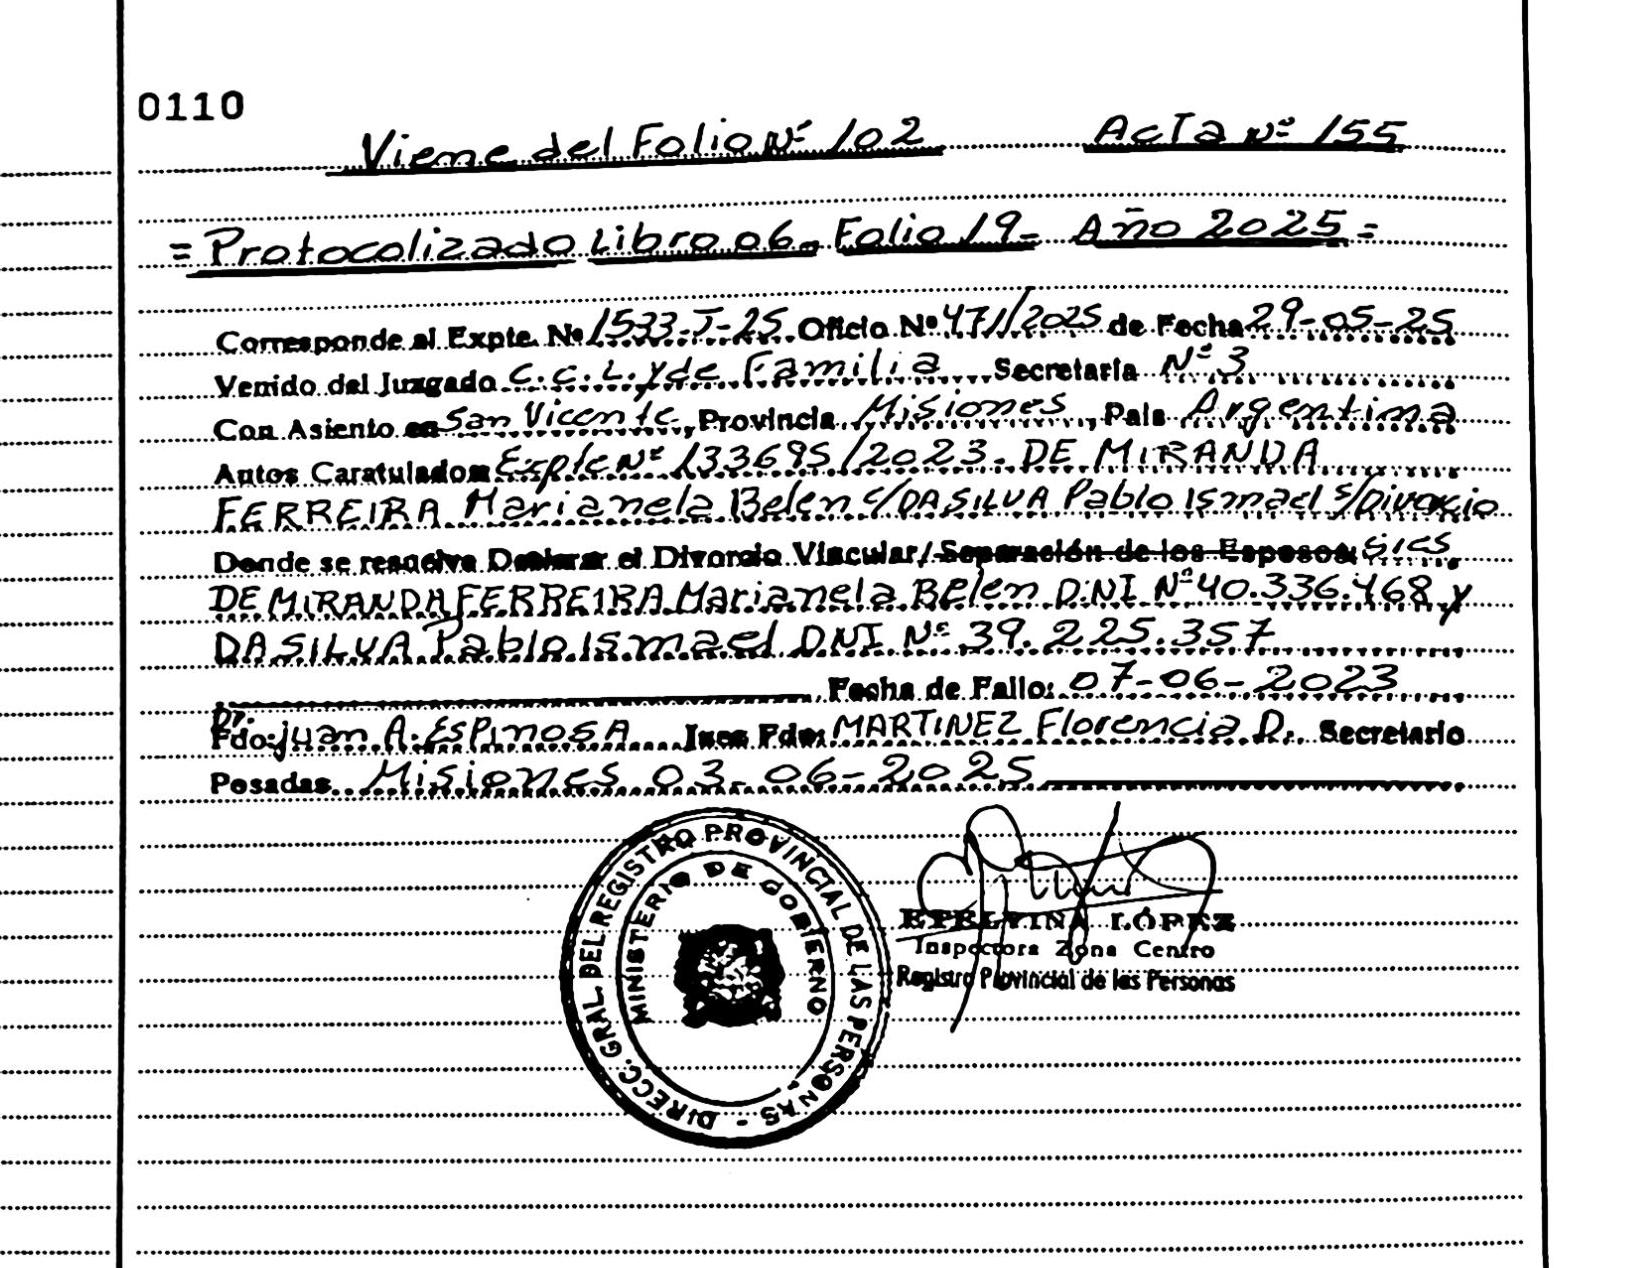 0110
Viene del Folio Nº 102 Acta Nº 155
= Protocolizado Libro 06- Folio 19- Año 2025 =
Corresponde al Expte. Nº 1533-J-25 Oficio Nº 471/2025 de Fecha 29-05-25
Venido del Juzgado C.C.L. y de Familia Secretaria Nº 3
Con Asiento en San Vicente, Provincia Misiones, País Argentina
Autos Caratulados Expte Nº 133695/2023. DE MIRANDA
FERREIRA Marianela Belen c/DA SILVA Pablo Ismael s/Divorcio
Donde se resuelve Declarar el Divorcio Vincular/Separación de los Esposos:
DE MIRANDA FERREIRA Marianela Belen DNI Nº 40.336.468 y
DA SILVA Pablo Ismael DNI Nº 39.225.357
Fecha de Fallo: 07-06-2023
Dr.
Fdo: Juan A. ESPINOSA Juez Fdo: MARTINEZ Florencia D. Secretario
Posadas Misiones 03-06-2025
DIRECC. GRAL. DEL REGISTRO PROVINCIAL DE LAS PERSONAS -
MINISTERIO DE GOBIERNO
ETELVINA LÓPEZ
Inspectora Zona Centro
Registro Provincial de las Personas